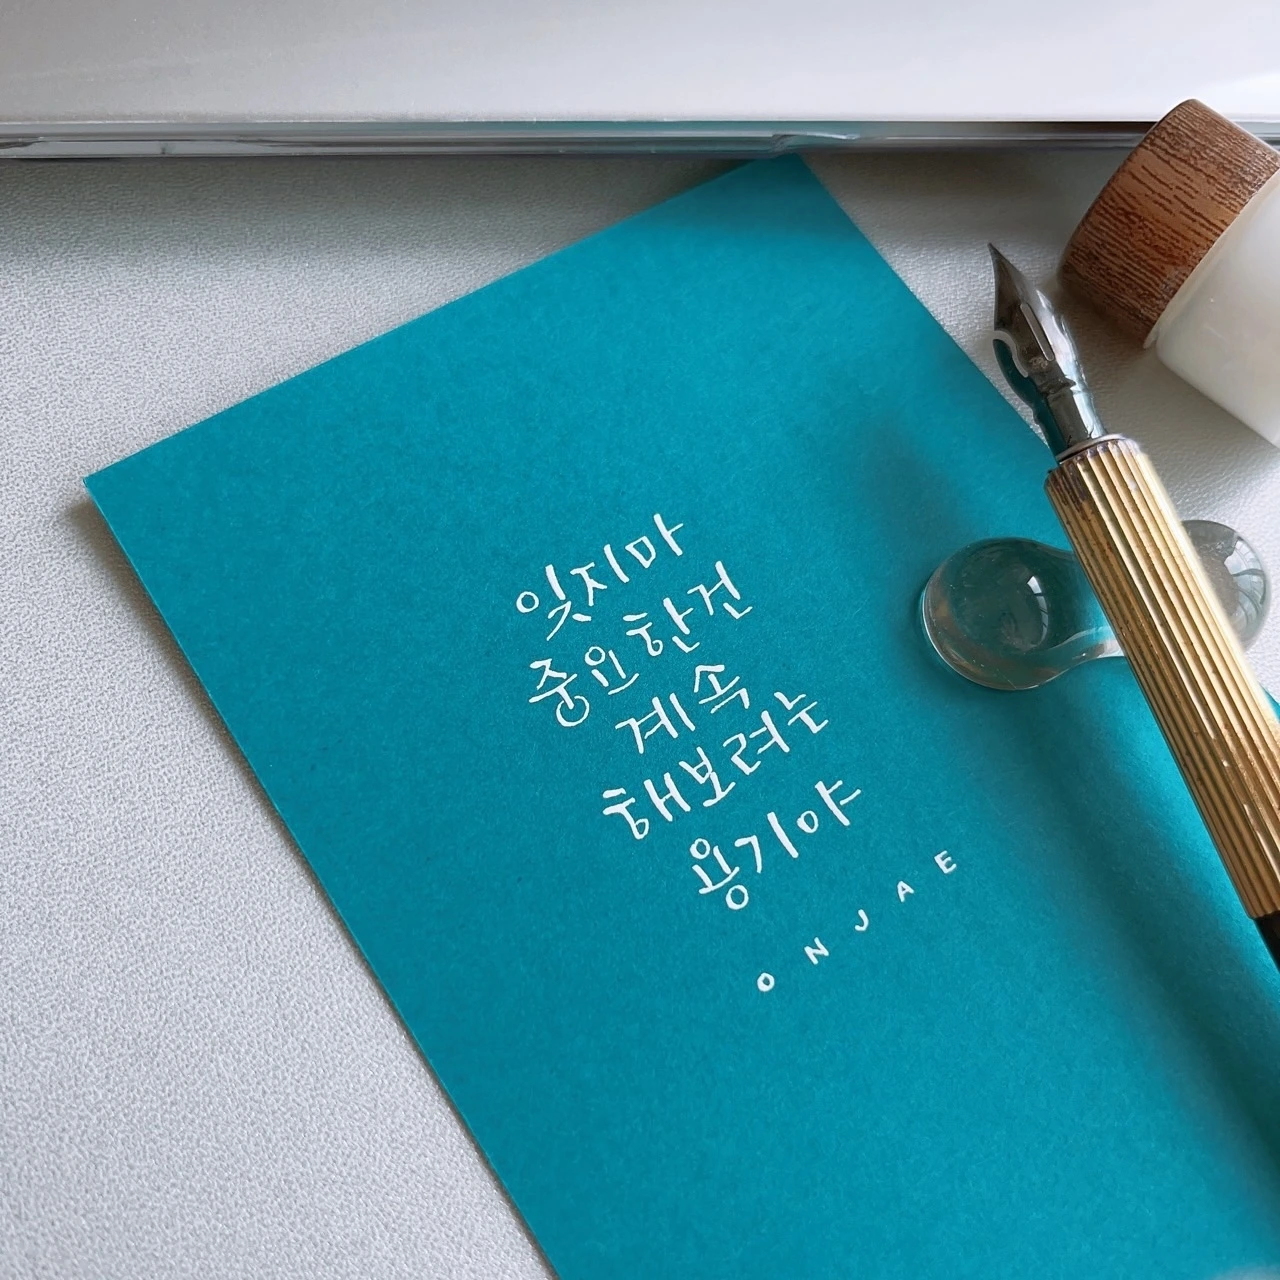 잊지마
중요한건
계속
해보려는
용기야
ONJAE